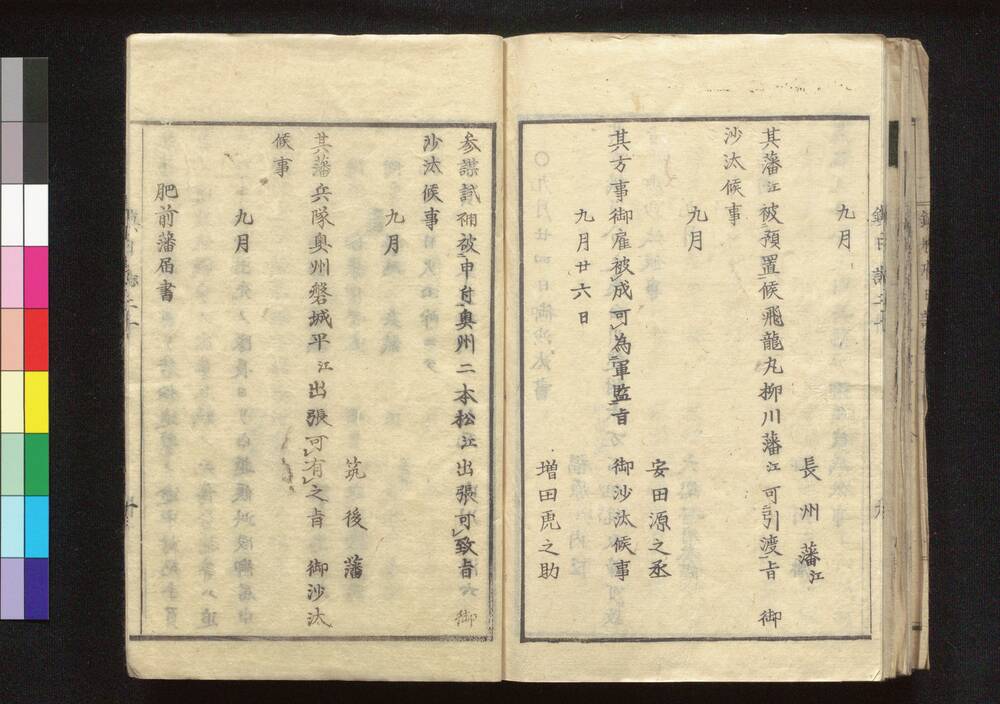 九月
長州藩江
其藩江被預置候飛龍丸柳川藩江可引渡旨　御
沙汰候事
九月
安田源之丞
其方事御雇被成可為軍監旨　御沙汰候事
九月廿六日
増田虎之助
参謀試補被申付奥州二本松江出張可致旨　御
沙汰候事
九月
筑後藩
其藩兵隊奥州磐城平江出張可有之旨　御沙汰
候事
九月
肥前藩届書